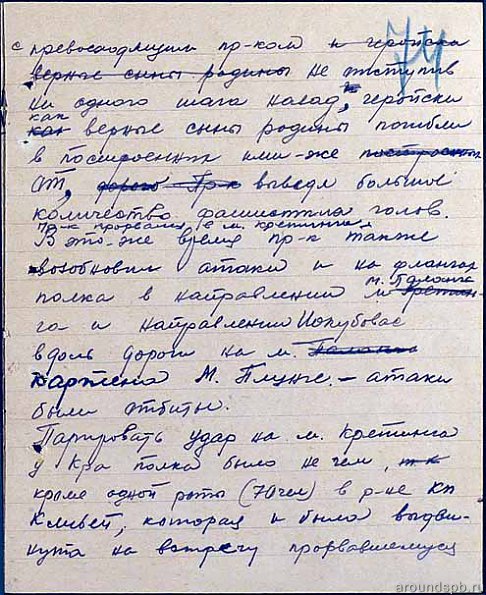 74
с превосходящим пр-ком и геройски
верные сыны родины не отступив
ни одного шага назад, и геройски
как
как верные сыны родины погибли
в построенных ими-же построенных
ОТ, дорого Пр-к выведя большое
количество фашистких голов.
Пр-к прорвался в м. кретинга
В это-же время пр-к также
возобновил атаки и на флангах
полка в направлении м. Паланга
м. Кретин-
га и направлении Иопубовас
вдоль дороги на м. Паланга
Картена М. Плунге. – атаки
были отбиты.
Парировать удар на м. Кретинга
у к-ра полка было не чем, т к
кроме одной роты (70 чел) в р-не КП
Клибей, которая и была выдви-
нута на встречу прорвавшемуся
aroundspb.ru